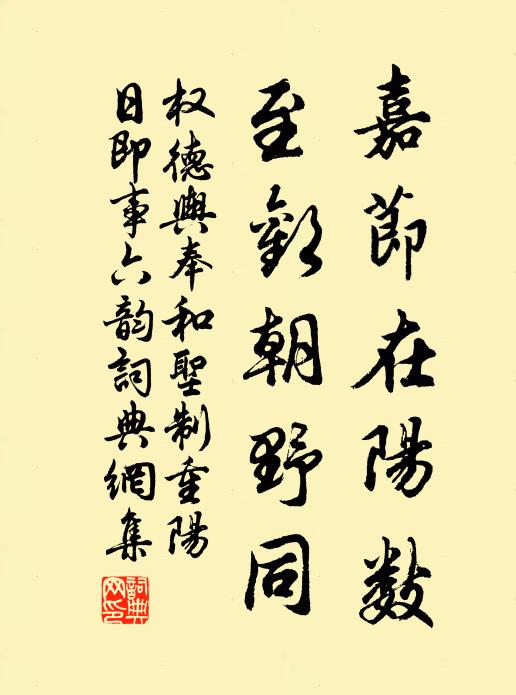 嘉節在陽數
至歡朝野同
权德輿奉和聖制重陽
日即事六韵詞典網集
詞典網印